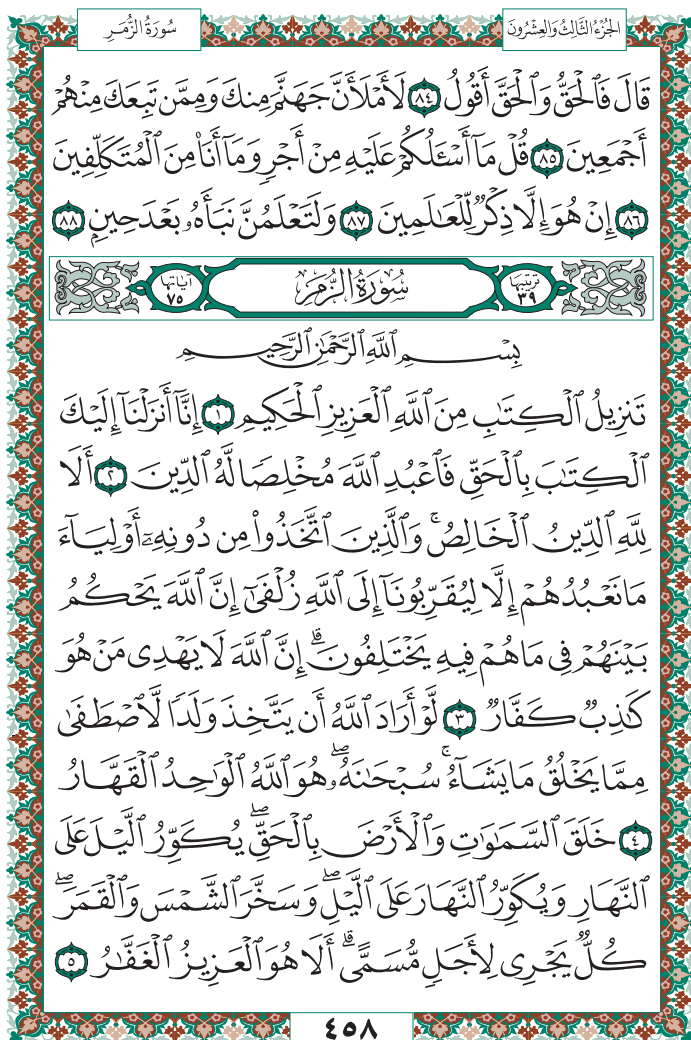 سُورَةُ الزُّمَرِ
الجُزْءُ الثَّالِثُ وَالعِشْرُونَ
قَالَ فَٱلْحَقُّ وَٱلْحَقَّ أَقُولُ ٨٤ لَأَمْلَأَنَّ جَهَنَّمَ مِنكَ وَمِمَّن تَبِعَكَ مِنْهُمْ
أَجْمَعِينَ ٨٥ قُلْ مَآ أَسْـَٔلُكُمْ عَلَيْهِ مِنْ أَجْرٍ وَمَآ أَنَا۠ مِنَ ٱلْمُتَكَلِّفِينَ
٨٦ إِنْ هُوَ إِلَّا ذِكْرٌ لِّلْعَـٰلَمِينَ ٨٧ وَلَتَعْلَمُنَّ نَبَأَهُۥ بَعْدَ حِينٍۭ ٨٨
ترتيبها ٣٩ سُورَةُ الزُّمَرِ آياتها ٧٥
بِسْمِ ٱللَّهِ ٱلرَّحْمَـٰنِ ٱلرَّحِيمِ
تَنزِيلُ ٱلْكِتَـٰبِ مِنَ ٱللَّهِ ٱلْعَزِيزِ ٱلْحَكِيمِ ١ إِنَّآ أَنزَلْنَآ إِلَيْكَ
ٱلْكِتَـٰبَ بِٱلْحَقِّ فَٱعْبُدِ ٱللَّهَ مُخْلِصًا لَّهُ ٱلدِّينَ ٢ أَلَا
لِلَّهِ ٱلدِّينُ ٱلْخَالِصُ ۚ وَٱلَّذِينَ ٱتَّخَذُوا۟ مِن دُونِهِۦٓ أَوْلِيَآءَ
مَا نَعْبُدُهُمْ إِلَّا لِيُقَرِّبُونَآ إِلَى ٱللَّهِ زُلْفَىٰٓ إِنَّ ٱللَّهَ يَحْكُمُ
بَيْنَهُمْ فِى مَا هُمْ فِيهِ يَخْتَلِفُونَ ۗ إِنَّ ٱللَّهَ لَا يَهْدِى مَنْ هُوَ
كَـٰذِبٌ كَفَّارٌ ٣ لَّوْ أَرَادَ ٱللَّهُ أَن يَتَّخِذَ وَلَدًا لَّٱصْطَفَىٰ
مِمَّا يَخْلُقُ مَا يَشَآءُ ۚ سُبْحَـٰنَهُۥ ۖ هُوَ ٱللَّهُ ٱلْوَٰحِدُ ٱلْقَهَّارُ
٤ خَلَقَ ٱلسَّمَـٰوَٰتِ وَٱلْأَرْضَ بِٱلْحَقِّ ۖ يُكَوِّرُ ٱلَّيْلَ عَلَى
ٱلنَّهَارِ وَيُكَوِّرُ ٱلنَّهَارَ عَلَى ٱلَّيْلِ ۖ وَسَخَّرَ ٱلشَّمْسَ وَٱلْقَمَرَ ۖ
كُلٌّ يَجْرِى لِأَجَلٍ مُّسَمًّى ۗ أَلَا هُوَ ٱلْعَزِيزُ ٱلْغَفَّـٰرُ ٥
٤٥٨